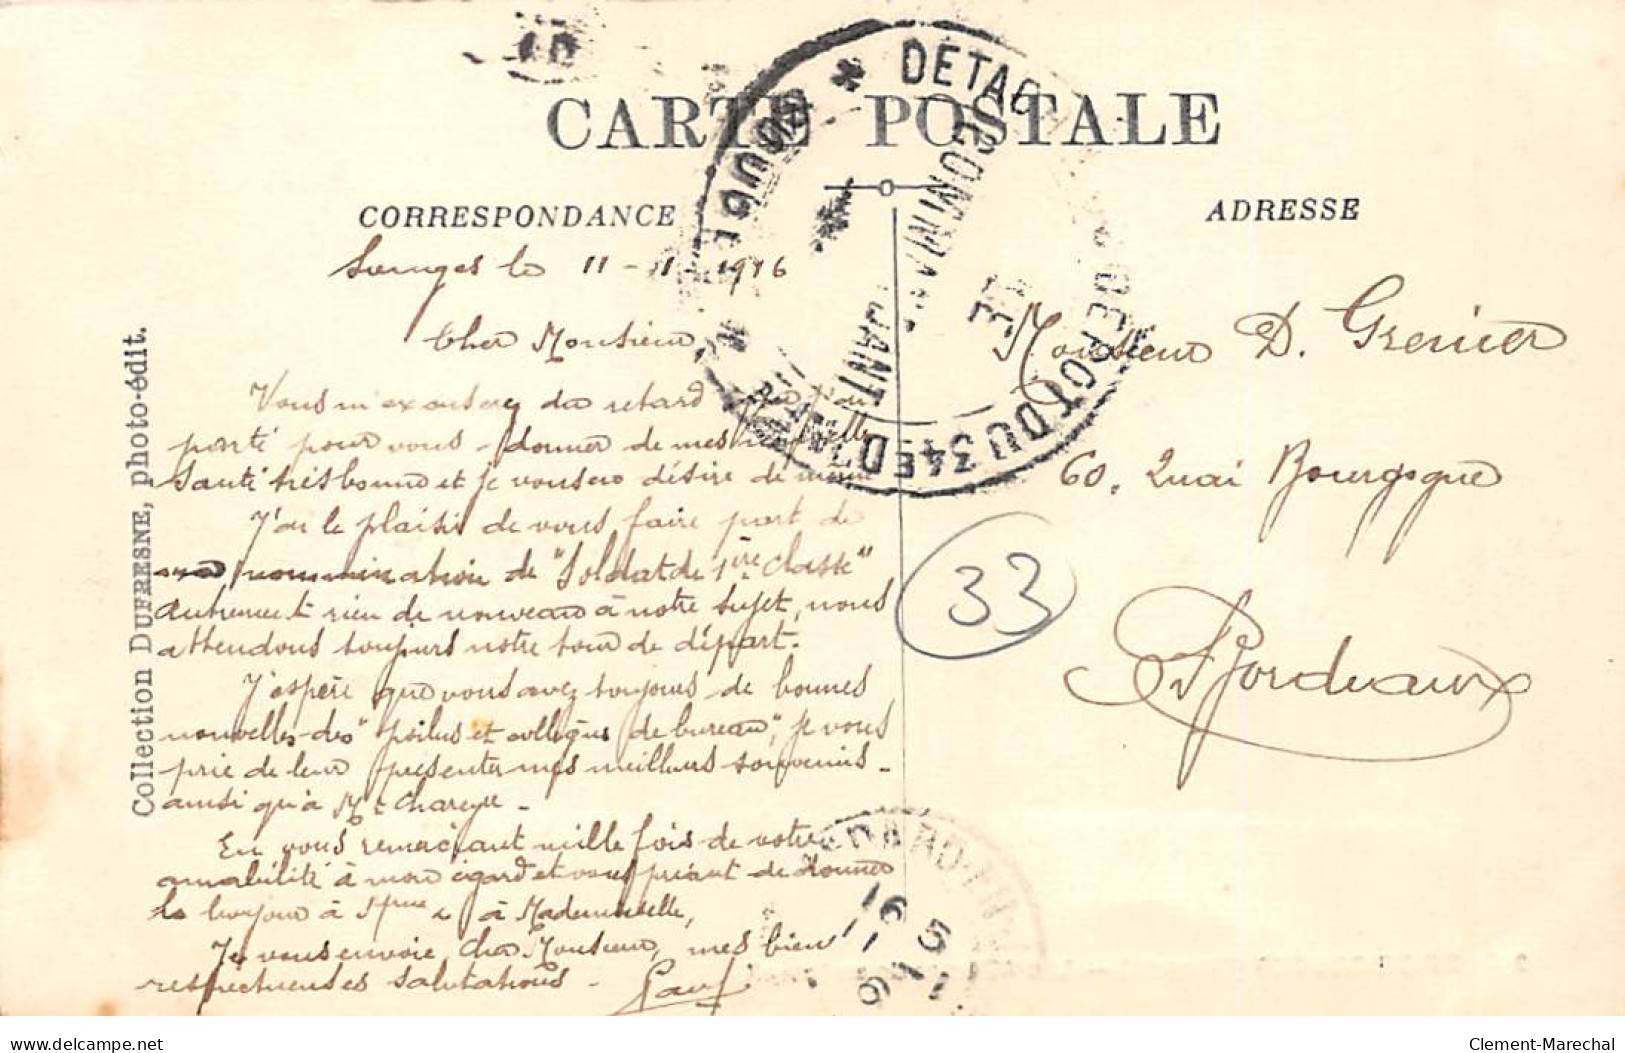 CARTE POSTALE
CORRESPONDANCE
ADRESSE
le 11-11-1916
Cher Monsieur,
Vous m'excuserez du retard
porté pour vous donner de mes nouvelles
Santé très bonne et je vous en désire de même
J'ai le plaisir de vous faire part de
nomination de "Soldat de 1ère Classe"
autrement rien de nouveau à notre sujet, nous
attendons toujours notre tour de départ.
J'espère que vous avez toujours de bonnes
nouvelles des "poilus et collègues de bureau", je vous
prie de leur présenter mes meilleurs souvenirs
ainsi qu'à
En vous remerciant mille fois de votre
amabilité à mon égard et vous priant de donner
le bonjour à à Mademoiselle,
Je vous envoie Cher Monsieur, mes bien
respectueuses salutations.
Monsieur D. Grenier
60, Quai Bourgogne
Bordeaux
33
Collection DUFRESNE, photo-édit.
DEPOT DU 34E D'INFANTERIE
DETAC
16
5
11
16
delcampe.net
Clement-Marechal